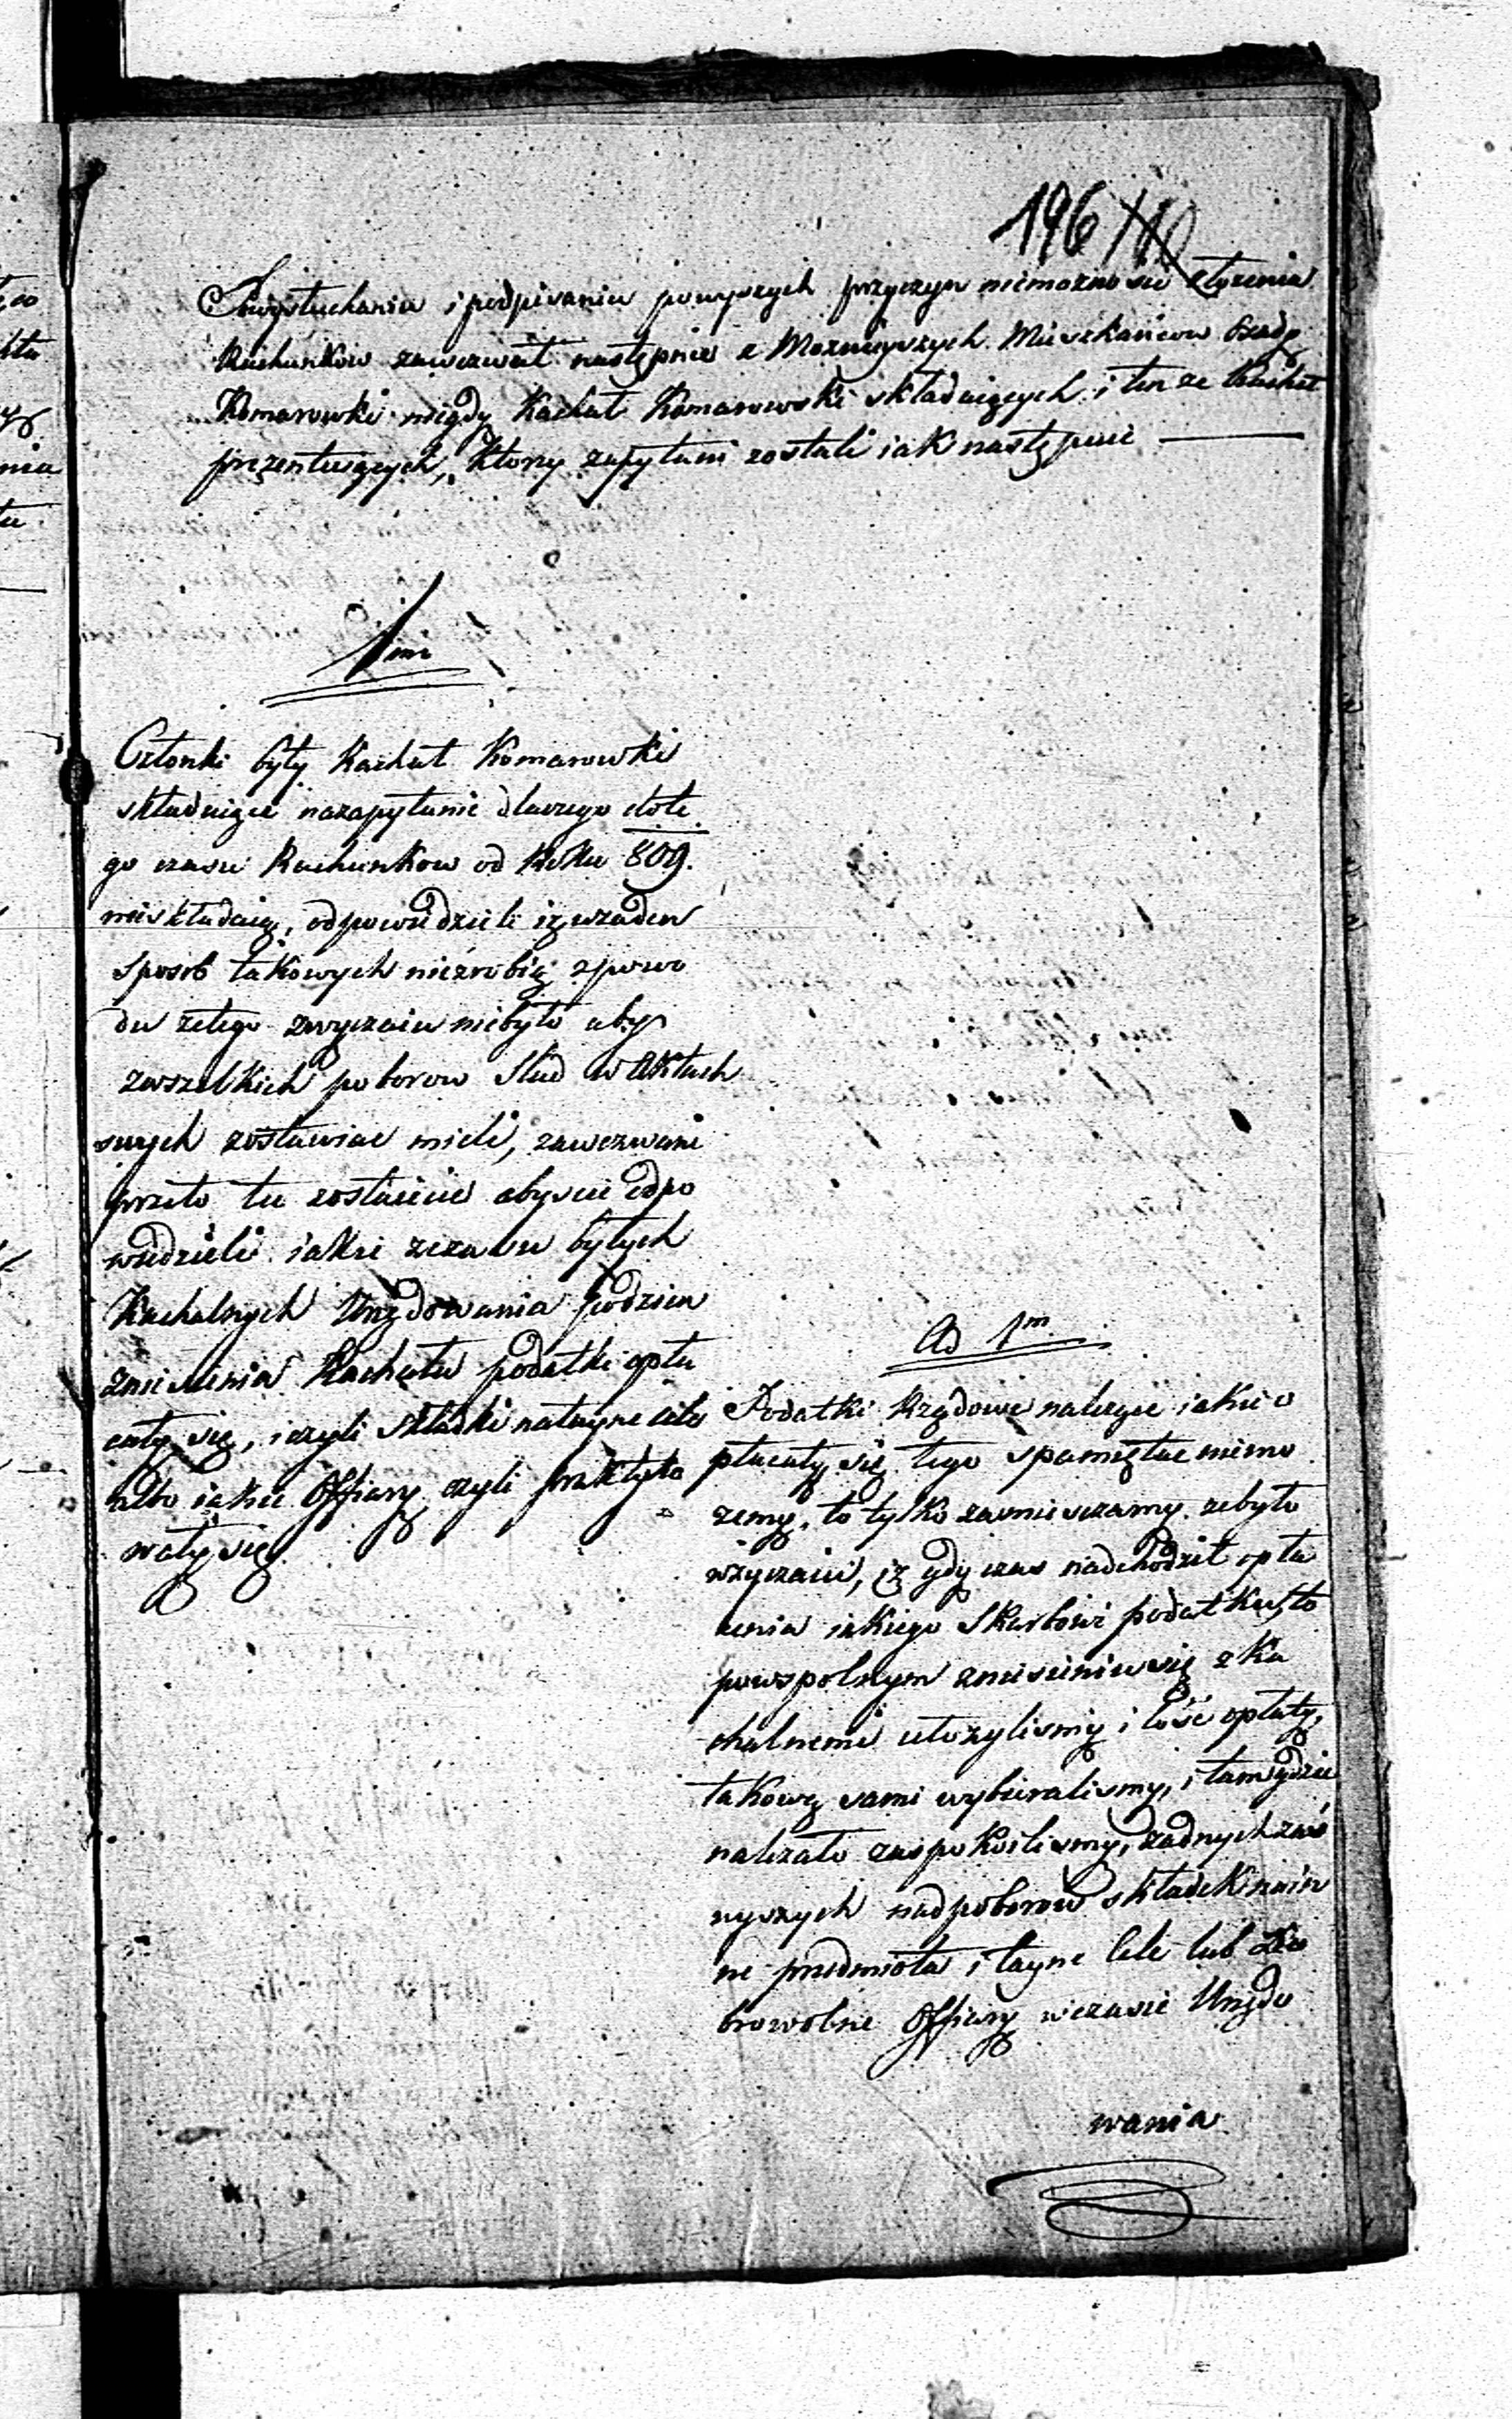 196
Powysłuchaniu i podpisaniu powyższych przyczyn niemożności złożenia
Rachunków zawezwał następnie z Mozniejszych Mieszkańców Osady
Komarowki niegdy Kachał Komarowski składaiących i ten ze Kachał
prezentuiących, ktory zapytani zostali iak następuie
1mo
Członki były Kachał Komarowki
składaiące nazapytanie dlaczego dote
go czasu Rachunkow od Roku 809.
nieskładaią, odpowiedzieli iz wzaden
sposob takowych niezrobią zpowo
du zetego zwyczaiu niebyło aby
zwszelkich poborow slad w Aktach
swych zostawiać mieli, zawezwani
przeto tu zostaiecie abyscie odpo
wiedzieli iakie zczasu byłych
Kachalnych Urzędowania podzien
zniesienia Kachału podatki opła
cały się, iczyli składki natayne cele
albo iakie Offiary czyli praktyko
wały się
Ad 1m
Podatki Rządowe należycie iakie o
płacały się tego spamiętac niemo
zemy, to tylko zasmieszamy zebyło
wzyczaiu, iz gdy czas nadchodził opła
cenia iakiego Skarbowi podatku, to
powspolnym zniesieniu się z Ka
chalnemi ułozylismy ilość opłaty,
takową sami wybieralismy, i tam gdzie
nalezało zaspokoilismy, żadnych zaś
wyszych nadpoborow składek nain
ne przedmiota i tayne cele lub Do
browolne Offiary wczasie Urzędo
wania